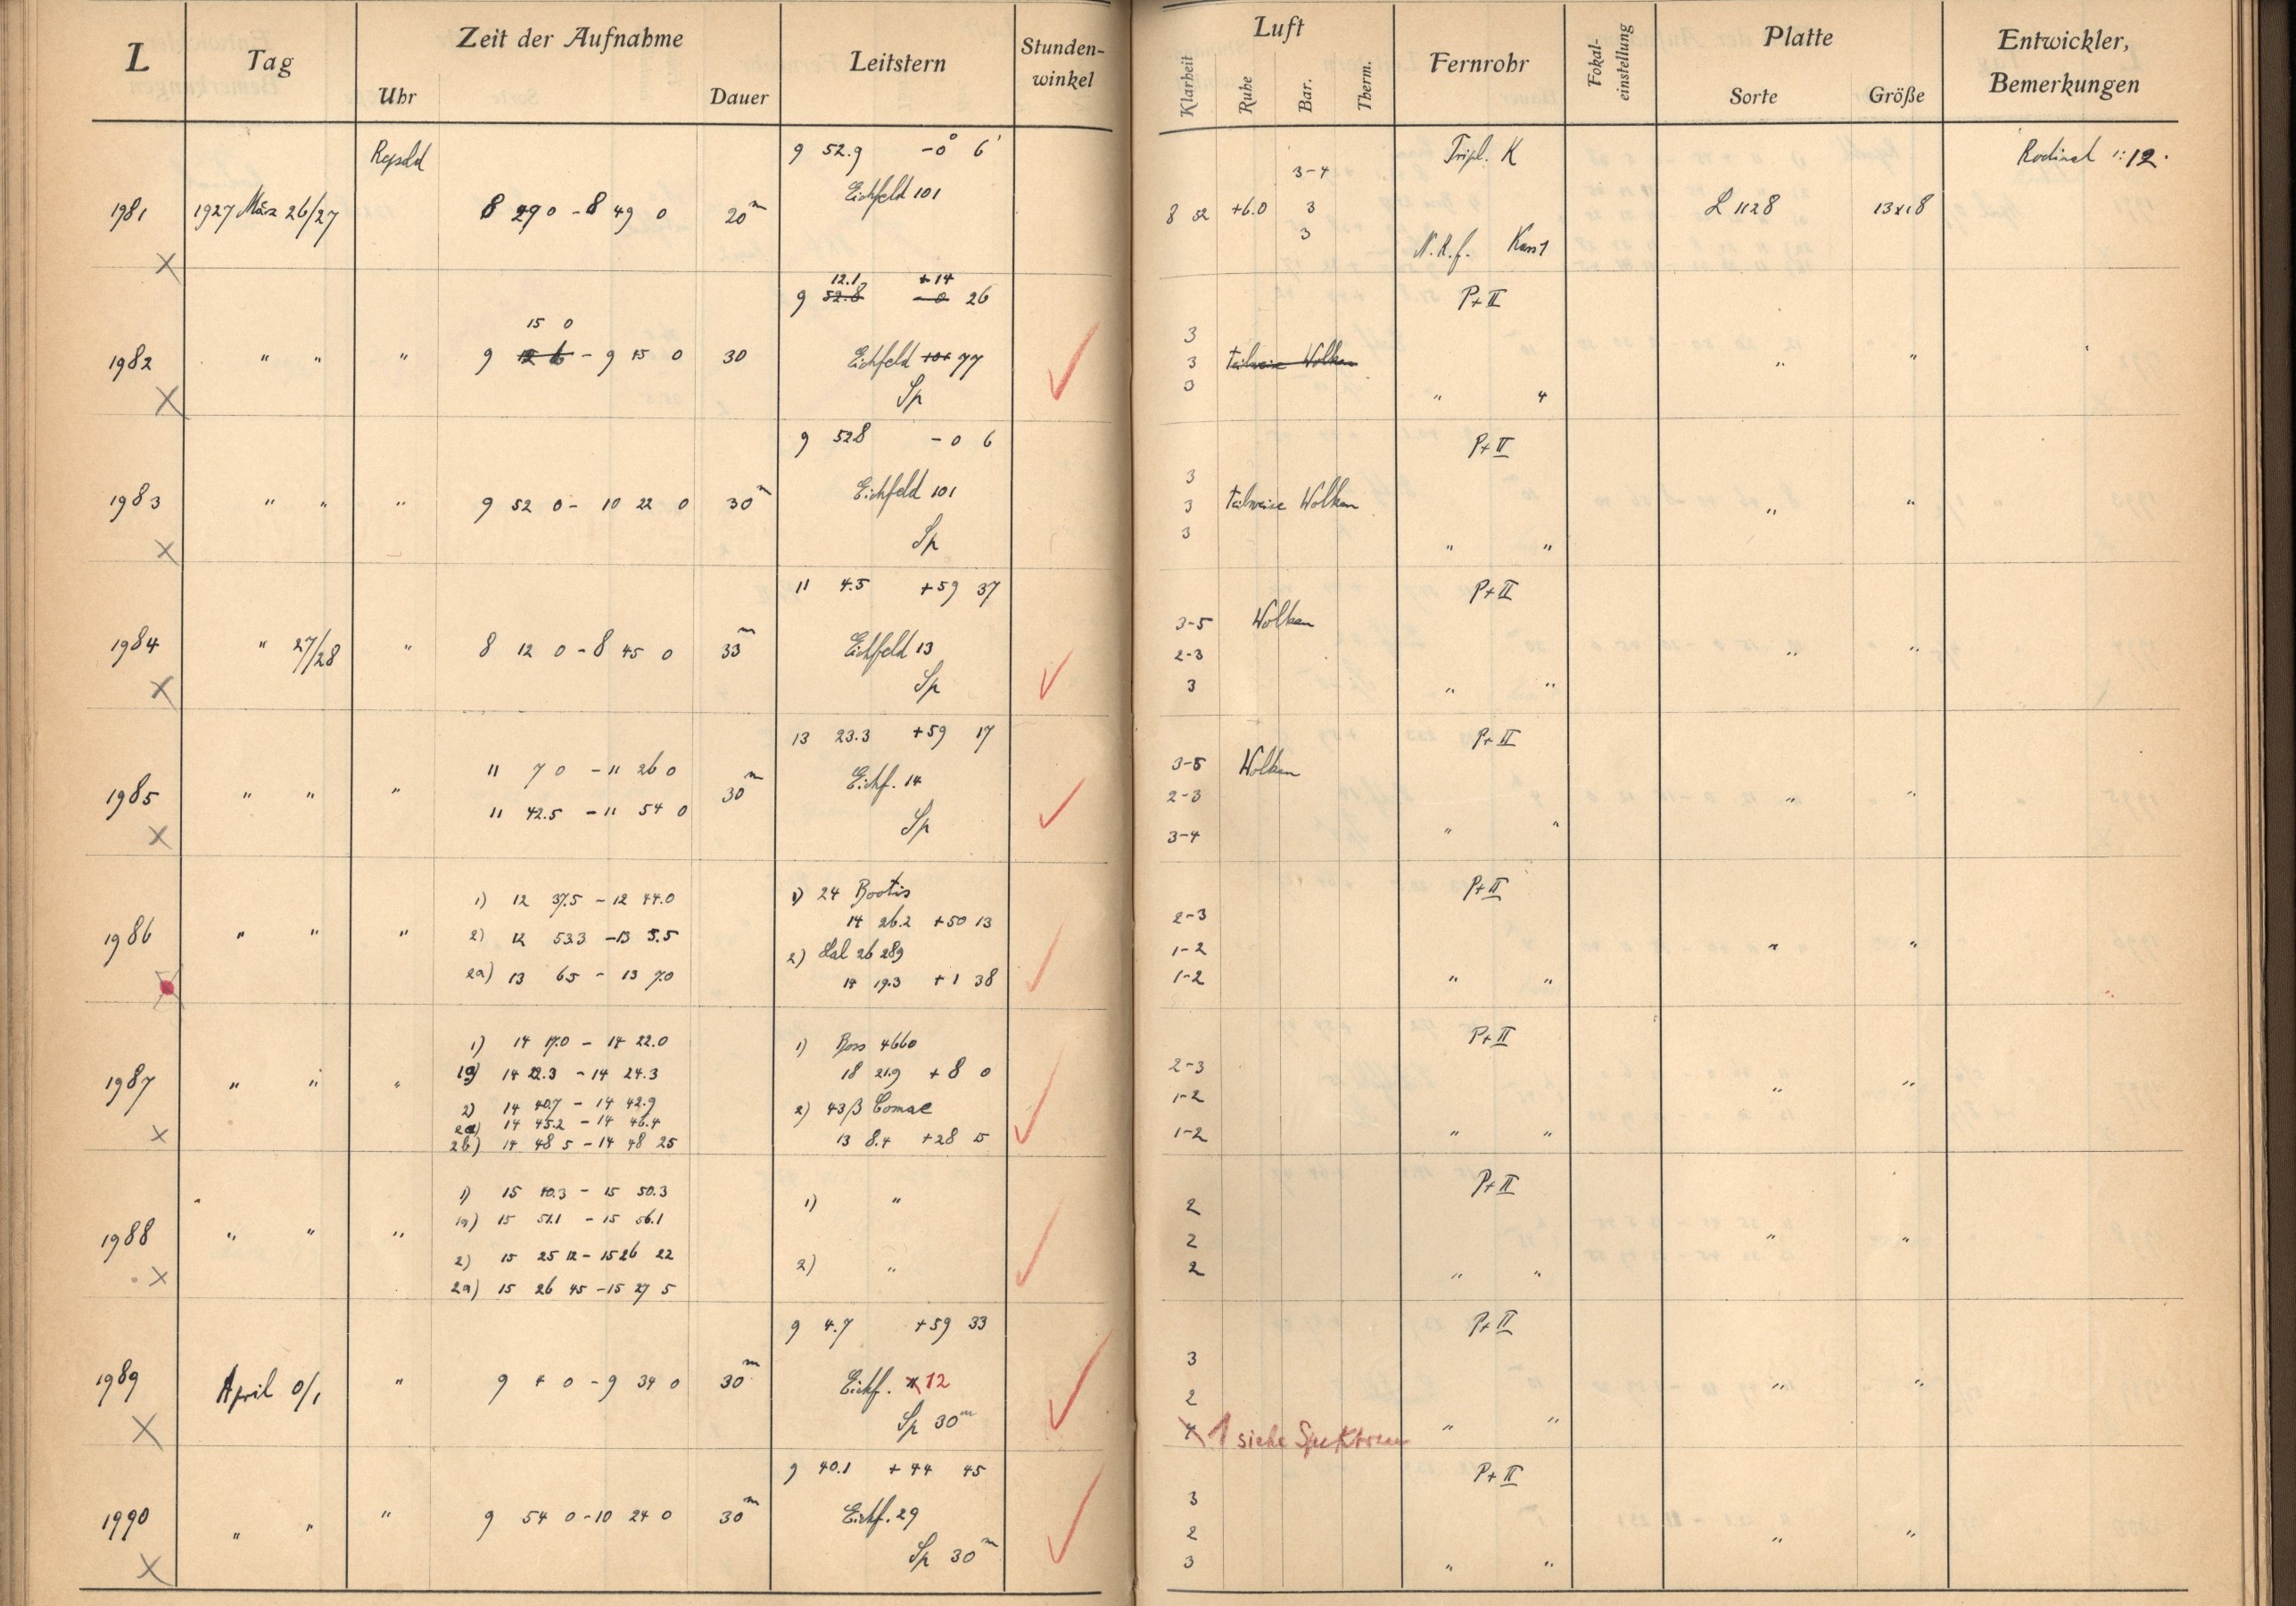 L Tag Zeit der Aufnahme Leitstern Stunden-winkel Luft Fernrohr Fokal-einstellung Platte Entwickler, Bemerkungen
Uhr Dauer Klarheit Ruhe Bar. Therm. Sorte Größe
Repsold 9 52.9 -0° 6' Tripl. K Rodinal 1:12.
3-4
1981 1927 März 26/27 8 29 0 - 8 49 0 20m Eichfeld 101 8 52 +6.0 3 L 1128 13x18
3 N.R.f. Kass1
12.1 +14
9 52.8 -0 26 P+II
15 0 3
1982 " " " 9 12 6 - 9 15 0 30 Eichfeld 101 77 3 teilweise Wolken " "
Sp 3 " 4
9 52.8 - 0 6 P+II
3
1983 " " " 9 52 0 - 10 22 0 30m Eichfeld 101 3 teilweise Wolken " "
Sp 3 " "
11 4.5 +59 37 P+II
3-5 Wolken
1984 " 27/28 " 8 12 0 - 8 45 0 33m Eichfeld 13 2-3 " "
Sp 3 " "
13 23.3 +59 17 P+II
11 7 0 - 11 26 0 3-5 Wolken
1985 " " " 30m Eichf. 14 2-3 " "
11 42.5 - 11 54 0 Sp 3-4 " "
1) 24 Bootis P+II
1) 12 37.5 - 12 44.0 14 26.2 +50 13 2-3
1986 " " " 2) 12 53.3 - 13 5.5 2) Lal 26 289 1-2 " "
2a) 13 6.5 - 13 7.0 14 19.3 +1 38 1-2 " "
1) 14 17.0 - 14 22.0 1) Boss 4660 P+II
1a) 14 22.3 - 14 24.3 18 21.9 +8 0 2-3
1987 " " " 2) 14 40.7 - 14 42.9 2) 43 β Comae 1-2 " "
2a) 14 45.2 - 14 46.4
2b) 14 48 5 - 14 48 25 13 8.4 +28 15 1-2 " "
1) 15 40.3 - 15 50.3 1) " P+II
1a) 15 51.1 - 15 56.1 2
1988 " " " 2) 15 25 12 - 15 26 22 2) " 2 " "
2a) 15 26 45 - 15 27 5 2 " "
9 4.7 +59 33 P+II
3
1989 April 0/1 " 9 4 0 - 9 34 0 30m Eichf. 12 2 " "
Sp 30m 4 1 siehe Spektren " "
9 40.1 +44 45 P+II
3
1990 " " " 9 54 0 - 10 24 0 30m Eichf. 29 2 " "
Sp 30m 3 " "